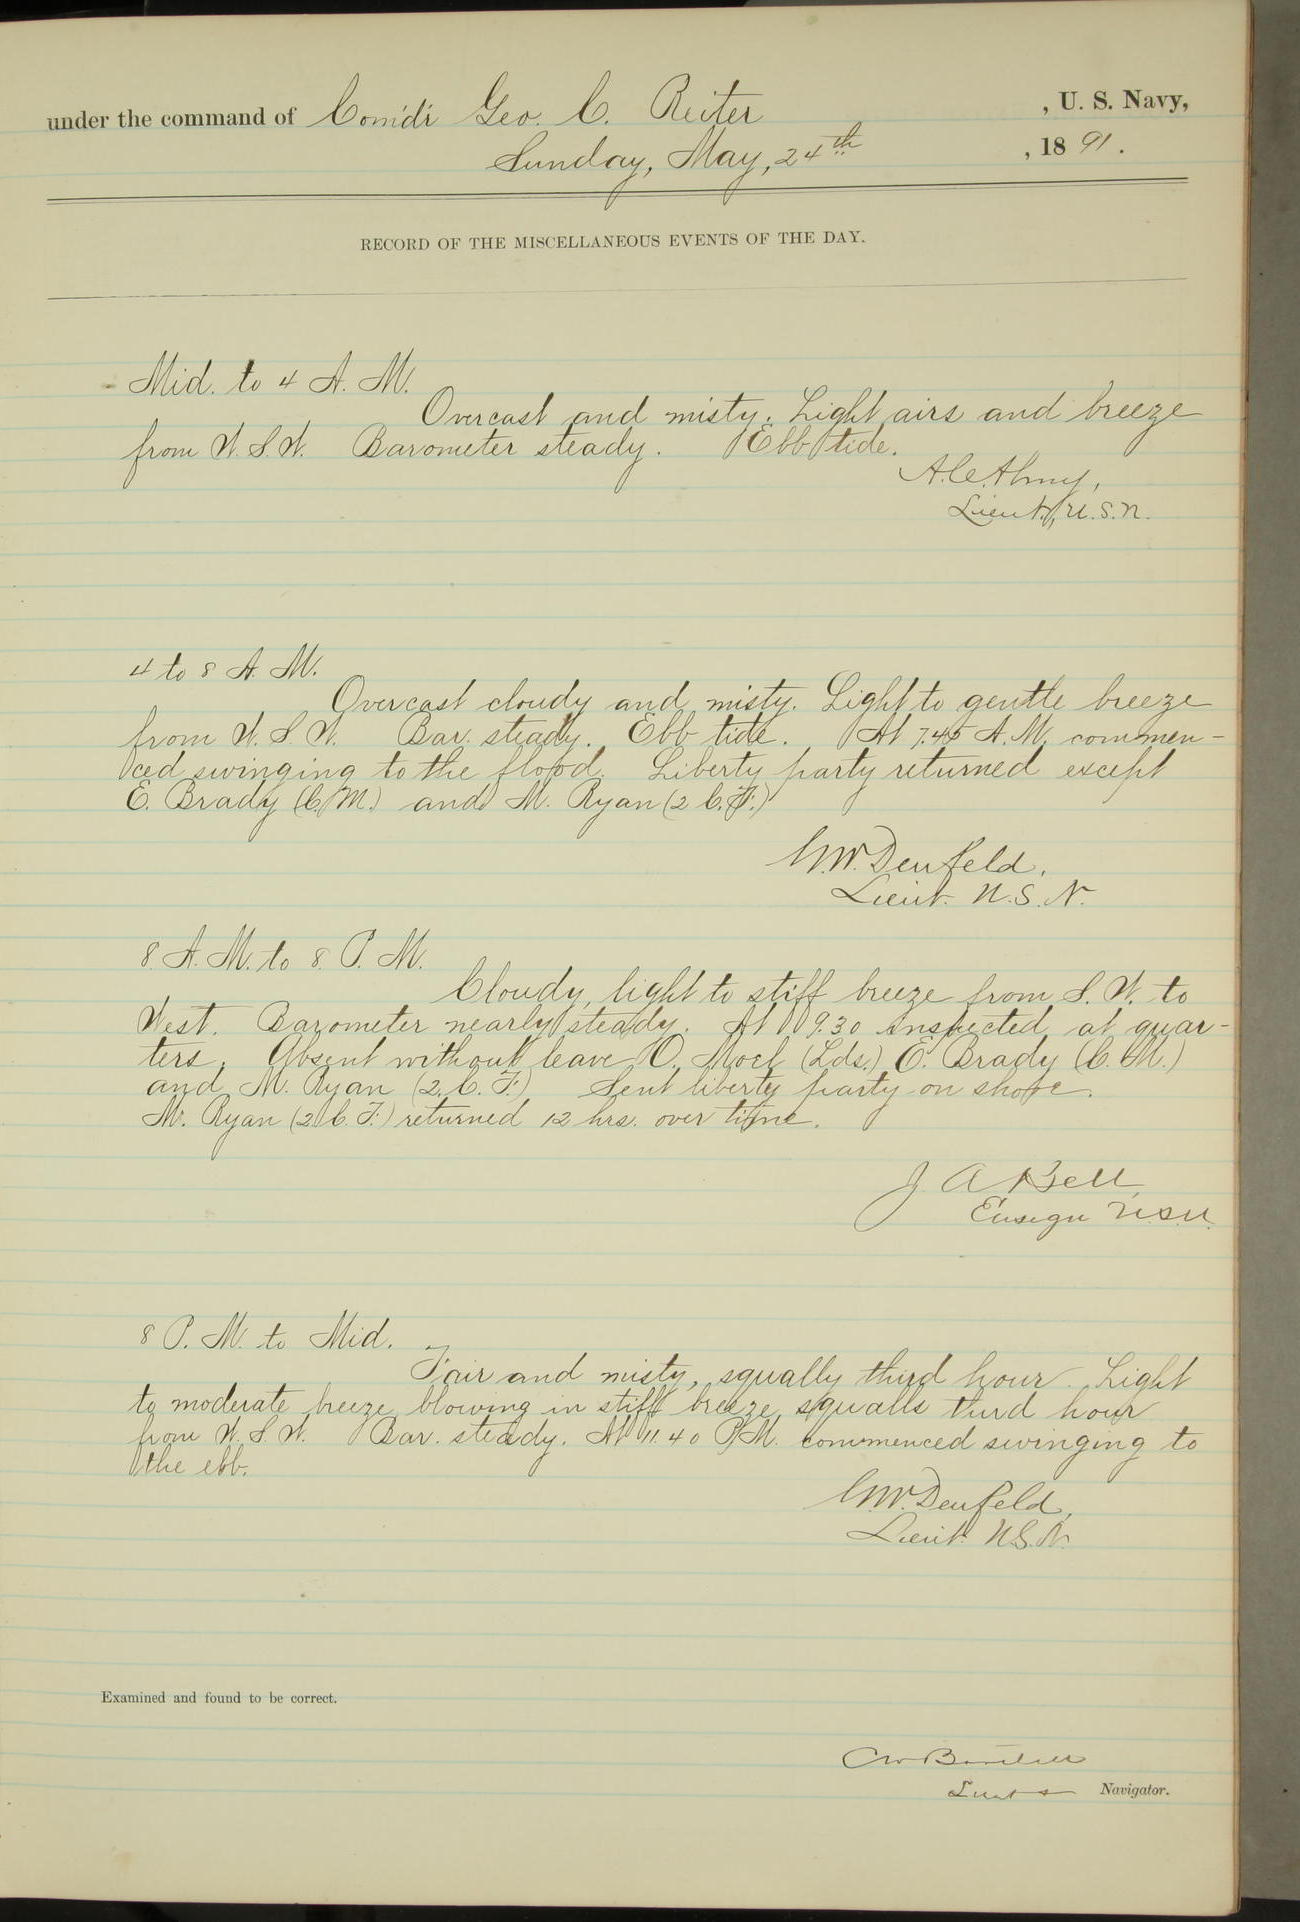 under the command of Com'd'r Geo. C. Reiter , U. S. Navy,
Sunday, May, 24th , 1891.
RECORD OF THE MISCELLANEOUS EVENTS OF THE DAY.
Mid. to 4 A. M.
Overcast and misty. Light airs and breeze
from W. S. W. Barometer steady. Ebb tide.
A. C. Almy,
Lieut., U.S.N.
4 to 8 A. M.
Overcast cloudy and misty. Light to gentle breeze
from W. S. W. Bar. steady. Ebb tide. At 7.45 A. M. commen-
ced swinging to the flood. Liberty party returned except
E. Brady (C. M.) and M. Ryan (2 C. F.)
G. W. Denfeld,
Lieut. U. S. N.
8 A. M. to 8 P. M.
Cloudy, light to stiff breeze from S. W. to
West. Barometer nearly steady. At 9.30 inspected at quar-
ters. Absent without leave O. (Lds.) E. Brady (C. M.)
and M. Ryan (2. C. F.) Sent liberty party on shore.
M. Ryan (2 C. F.) returned 12 hrs. over time.
J A Bell,
Ensign U.S.N.
8 P. M. to Mid.
Fair and misty, squally third hour. Light
to moderate breeze blowing in stiff breeze squalls third hour
from W. S. W. Bar. steady. At 11.40 P. M. commenced swinging to
the ebb.
G. W. Denfeld,
Lieut. U.S.N.
Examined and found to be correct.
C W
Lieut Navigator.